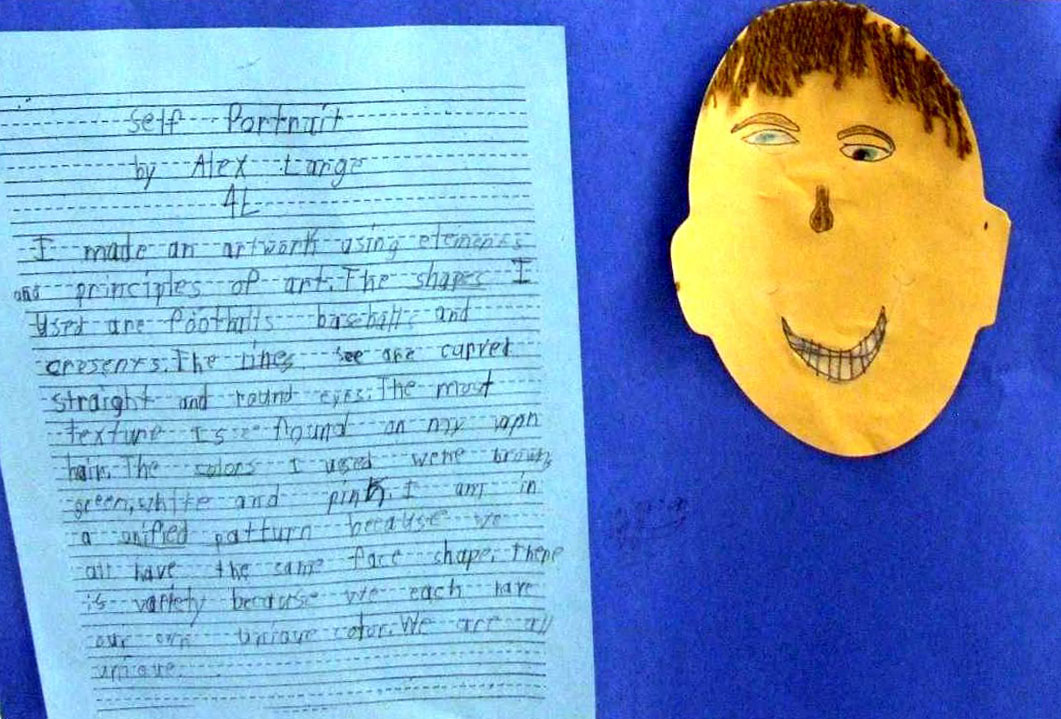 Self Portrait
by Alex Lange
4L
I made an artwork using elements
and principles of art. The shapes I
used are footballs baseballs and
cresents. The lines see are curved
straight and round eyes. The most
texture is found on my
hair. The colors I used were brown,
green, white and pink. I am in
a unified patturn because we
all have the same face shape. There
is variety because we each have
our own unique color. We are all
unique.